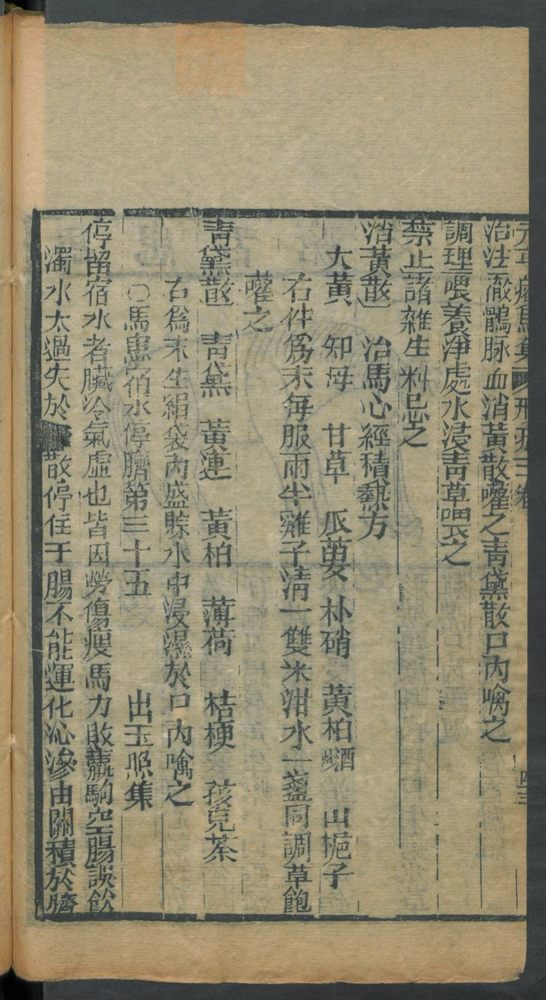 元亨療馬集 卷三 四三
治法 徹鶻脉血消黃散嚾之青黛散口內噙之
調理 喂養淨處水浸青草喂之
禁止 諸雜生料忌之
消黃散 治馬心經積熱方
大黃 知母 甘草 瓜蔞 朴硝 黃柏 山梔子
右件爲末每服兩半雞子清一雙米泔水一盞同調草飽
嚾之
青黛散 青黛 黃連 黃柏 薄荷 桔梗 孩兒茶
右爲末生絹袋內盛貯水中浸濕於口內噙之
○馬患宿水停臍第三十五 出玉照集
停留宿水者臟冷氣虛也皆因勞傷瘦馬力敗羸駒空腸誤飲
濁水太過失於散停住于腸不能運化沁滲由關積於臍